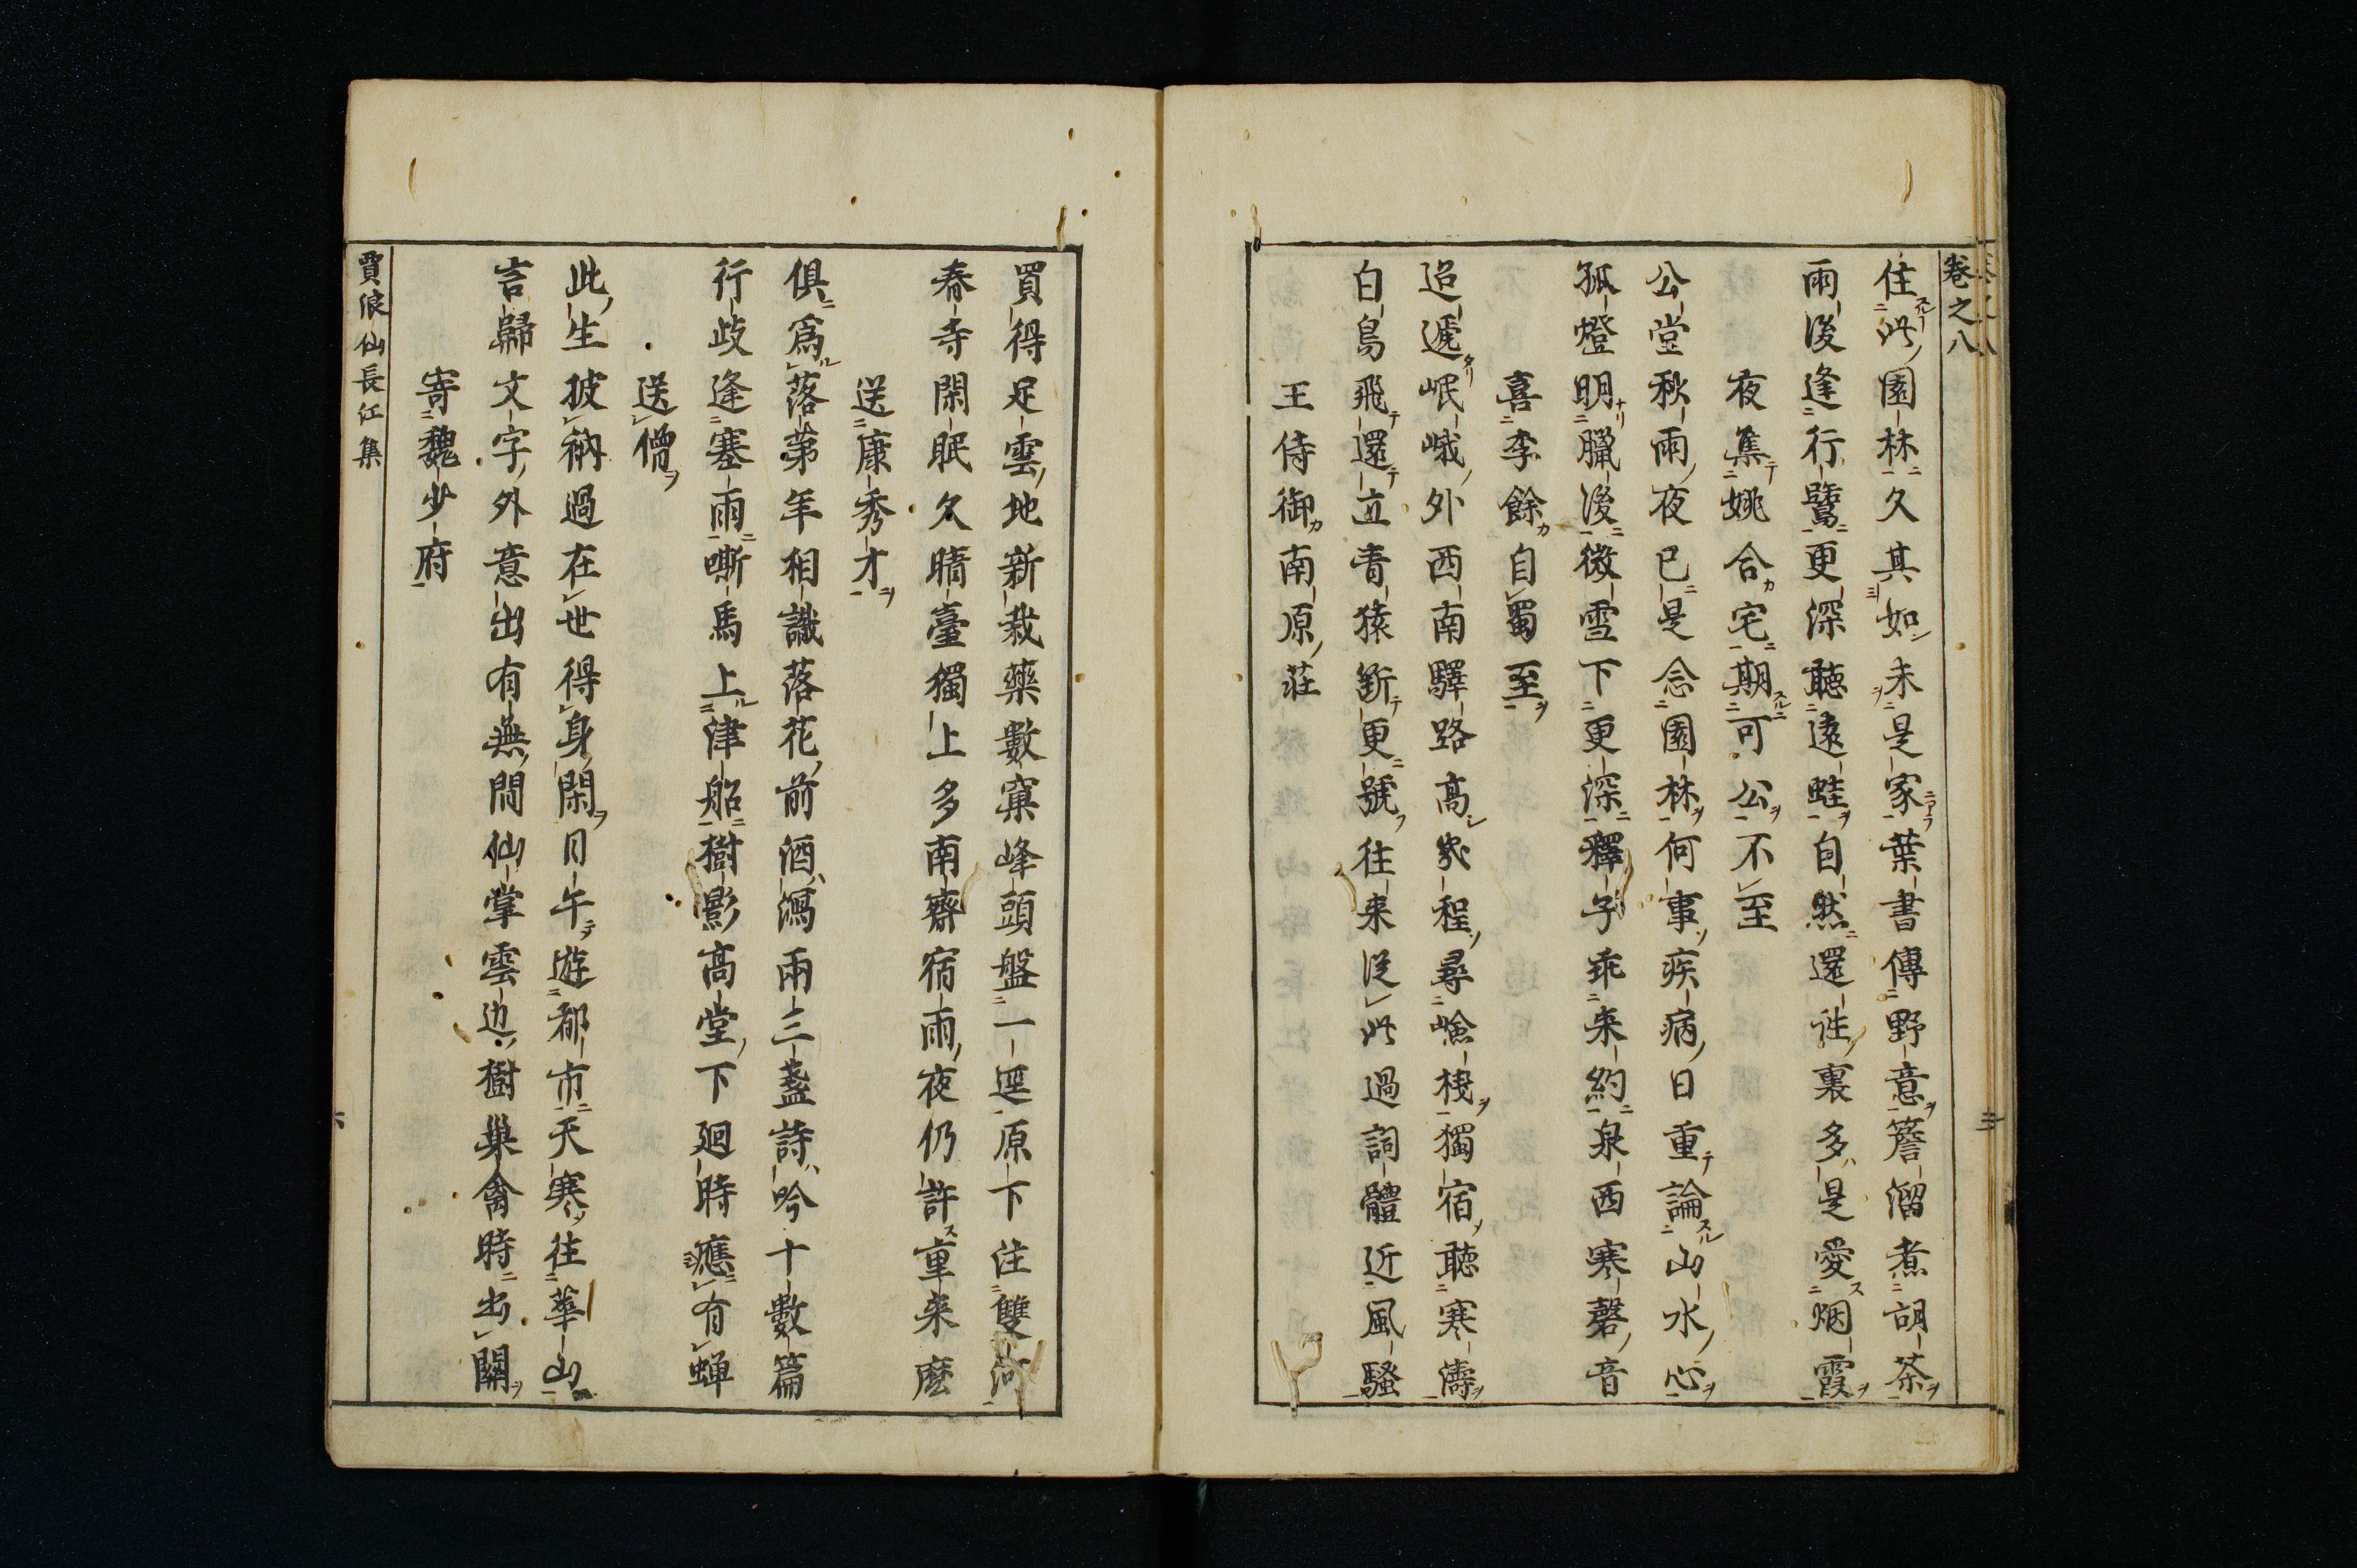 卷之八
住此園林久其如未是家葉書傳野意簷溜煮胡茶
雨後逢行鷺更深聴遠畦自然還往裏多是愛烟霞
夜集姚合宅期可公不至
公堂秋雨夜已是念園林何事疾病日重論山水心
孤燈明臘後微雪下更深釋子乖来約泉西寒磬音
喜李餘自蜀至
迢遞岷峨外西南驛路高幾程尋嶮棧獨宿聴寒濤
白鳥飛還立青猿断更號往来従此過詞體近風騷
王侍御南原莊
買得足雲地新栽藥數窠峰頭盤一逕原下注雙河
春寺閑眠久晴臺獨上多南齋宿雨夜仍許重来麽
送康秀才
俱為落第年相識落花前酒瀉兩三盞詩吟十數篇
行歧逢塞雨嘶馬上津船樹影高堂下廻時應有蟬
送僧
此生披衲過在世得身閑日午遊都市天寒往華山
言歸文字外意出有無間仙掌雲边樹巣禽時出關
寄魏少府
賈浪仙長江集
六